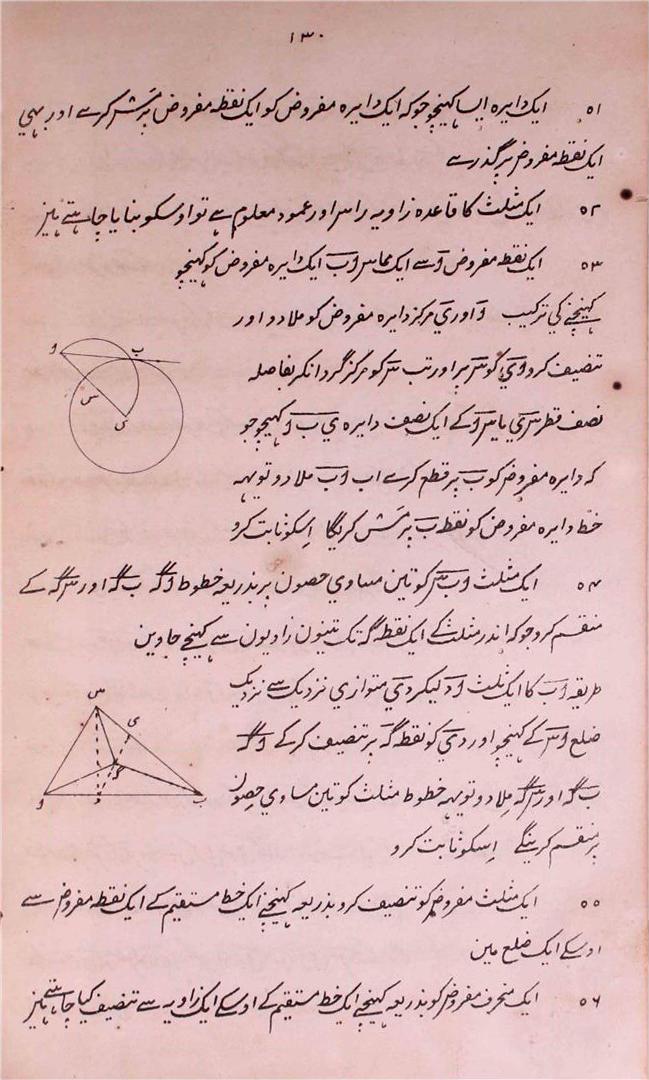 ۱۳۰
۵۱ ایک دایرہ ایسا کہینچو جو کہ ایک دایرہ مفروض کو ایک نقطہ مفروض پر مَس کرے اور بہی
ایک نقطہ مفروض پر گذرے
۵۲ ایک مثلث کا قاعدہ زاویہ راس اور عمود معلوم ہے تو اوسکو بنایا چاہتے ہیں
۵۳ ایک نقطہ مفروض وَ سے ایک مماس وَبَ ایک دایرہ مفروض کو کہینچو
کہینچنے کی ترکیب وَ اور یَ مرکز دایرہ مفروض کو ملا دو اور
تنصیف کرو وَیَ کو سَ پر اور تب سَ کو مرکز گردانکر بفاصلہ
نصف قطر سَیَ یا سَوَ کے ایک نصف دایرہ یَ بَ وَ کہینچو جو
کہ دایرہ مفروض کو بَ پر قطع کرے اب وَبَ ملا دو تو یہہ
خط دایرہ مفروض کو نقطہ بَ پر مَس کریگا اِسکو ثابت کرو
و
ب
س
ی
۵۴ ایک مثلث وَبَسَ کو تین مساوی حصون پر بذریعہ خطوط وَگَ بَگَ اور سَگَ کے
منقسم کرو جو کہ اندر مثلث کے ایک نقطہ گَ تک تینون زاویون سے کہینچے جاوین
طریقہ وَبَ کا ایک ثلث وَدَ لیکر دَیَ متوازی نزدیک سے نزدیک
ضلع وَسَ کے کہینچو اور دَیَ کو نقطہ گَ پر تنصیف کر کے وَگَ
بَگَ اور سَگَ ملا دو تو یہہ خطوط مثلث کو تین مساوی حصون
پر منقسم کرینگے اِسکو ثابت کرو
س
ی
گ
و
د
ب
۵۵ ایک مثلث مفروض کو تنصیف کرو بذریعہ کہینچنے ایک خط مستقیم کے ایک نقطہ مفروض سے
اوسکے ایک ضلع مین
۵۶ ایک منحرف مفروض کو بذریعہ کہینچنے ایک خط مستقیم کے اوسکے ایک زاویہ سے تنصیف کیا چاہتے ہیں